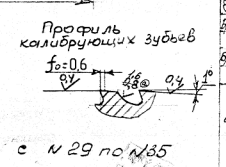 Профиль
калибрующих зубьев
f₀=0,6
0,4
0,4
1°
с N 29 по N 35